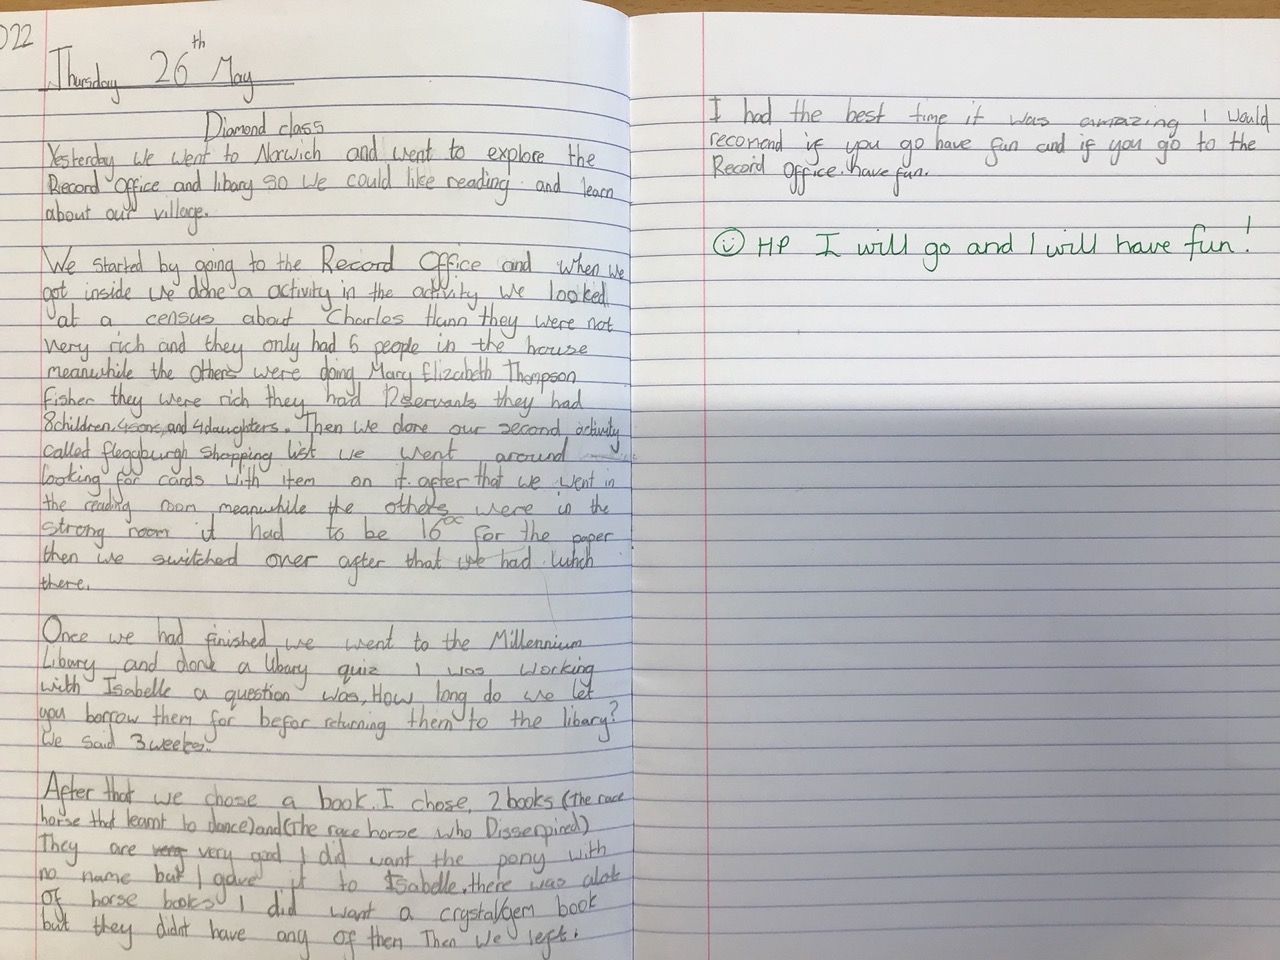 022
Thursday 26th May
Diamond class
Yesterday we went to Norwich and went to explore the
Record Office and libary so we could like reading and learn
about our village.
We started by going to the Record Office and when we
got inside we done a activity in the activity we looked
at a census about Charles Hann they were not
very rich and they only had 6 people in the house
meanwhile the others were doing Mary Elizabeth Thompson
Fisher they were rich they had 12 servants they had
8 children, 4 sons, and 4 daughters. Then we done our second activity
called fleggburgh shopping list we went around
looking for cards with item on it. after that we went in
the reading room meanwhile the others were in the
strong room it had to be 16°c for the paper
then we switched over after that we had lunch
there.
Once we had finished we went to the Millennium
Libary and done a libary quiz I was working
with Isabelle a question was, How long do we let
you borrow them for befor returning them to the libary?
We said 3 weeks.
After that we chose a book. I chose, 2 books (The race
horse that learnt to dance) and (The race horse who Disserpired)
They are very very good I did want the pony with
no name but I gave it to Isabelle, there was alot
of horse books I did want a crystal/gem book
but they didnt have any of them Then we left.
I had the best time it was amazing I would
recomend if you go have fun and if you go to the
Record Office. have fun.
HP I will go and I will have fun!